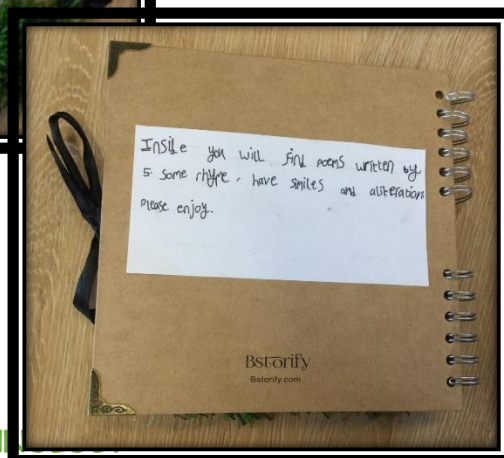 Inside you will find poems written by
5. Some rhyme, have smiles and aliteration.
please enjoy.
Bstorify
Bstorify.com